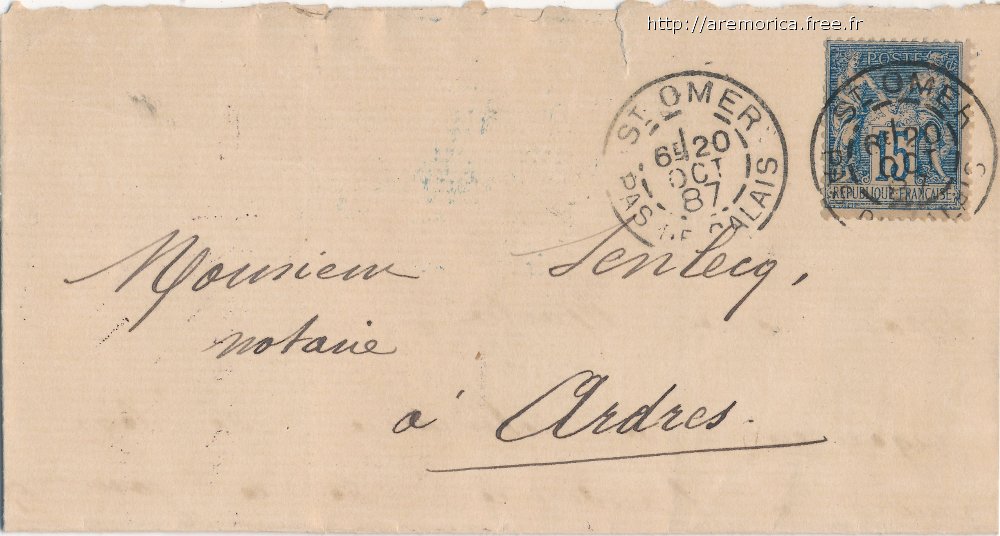 http://aremorica.free.fr
POSTE
15
REPUBLIQUE FRANÇAISE
ST OMER
6E 20
OCT
87
PAS DE CALAIS
ST OMER
6E 20
Monsieur Senlecq,
notaire
à Ardres.